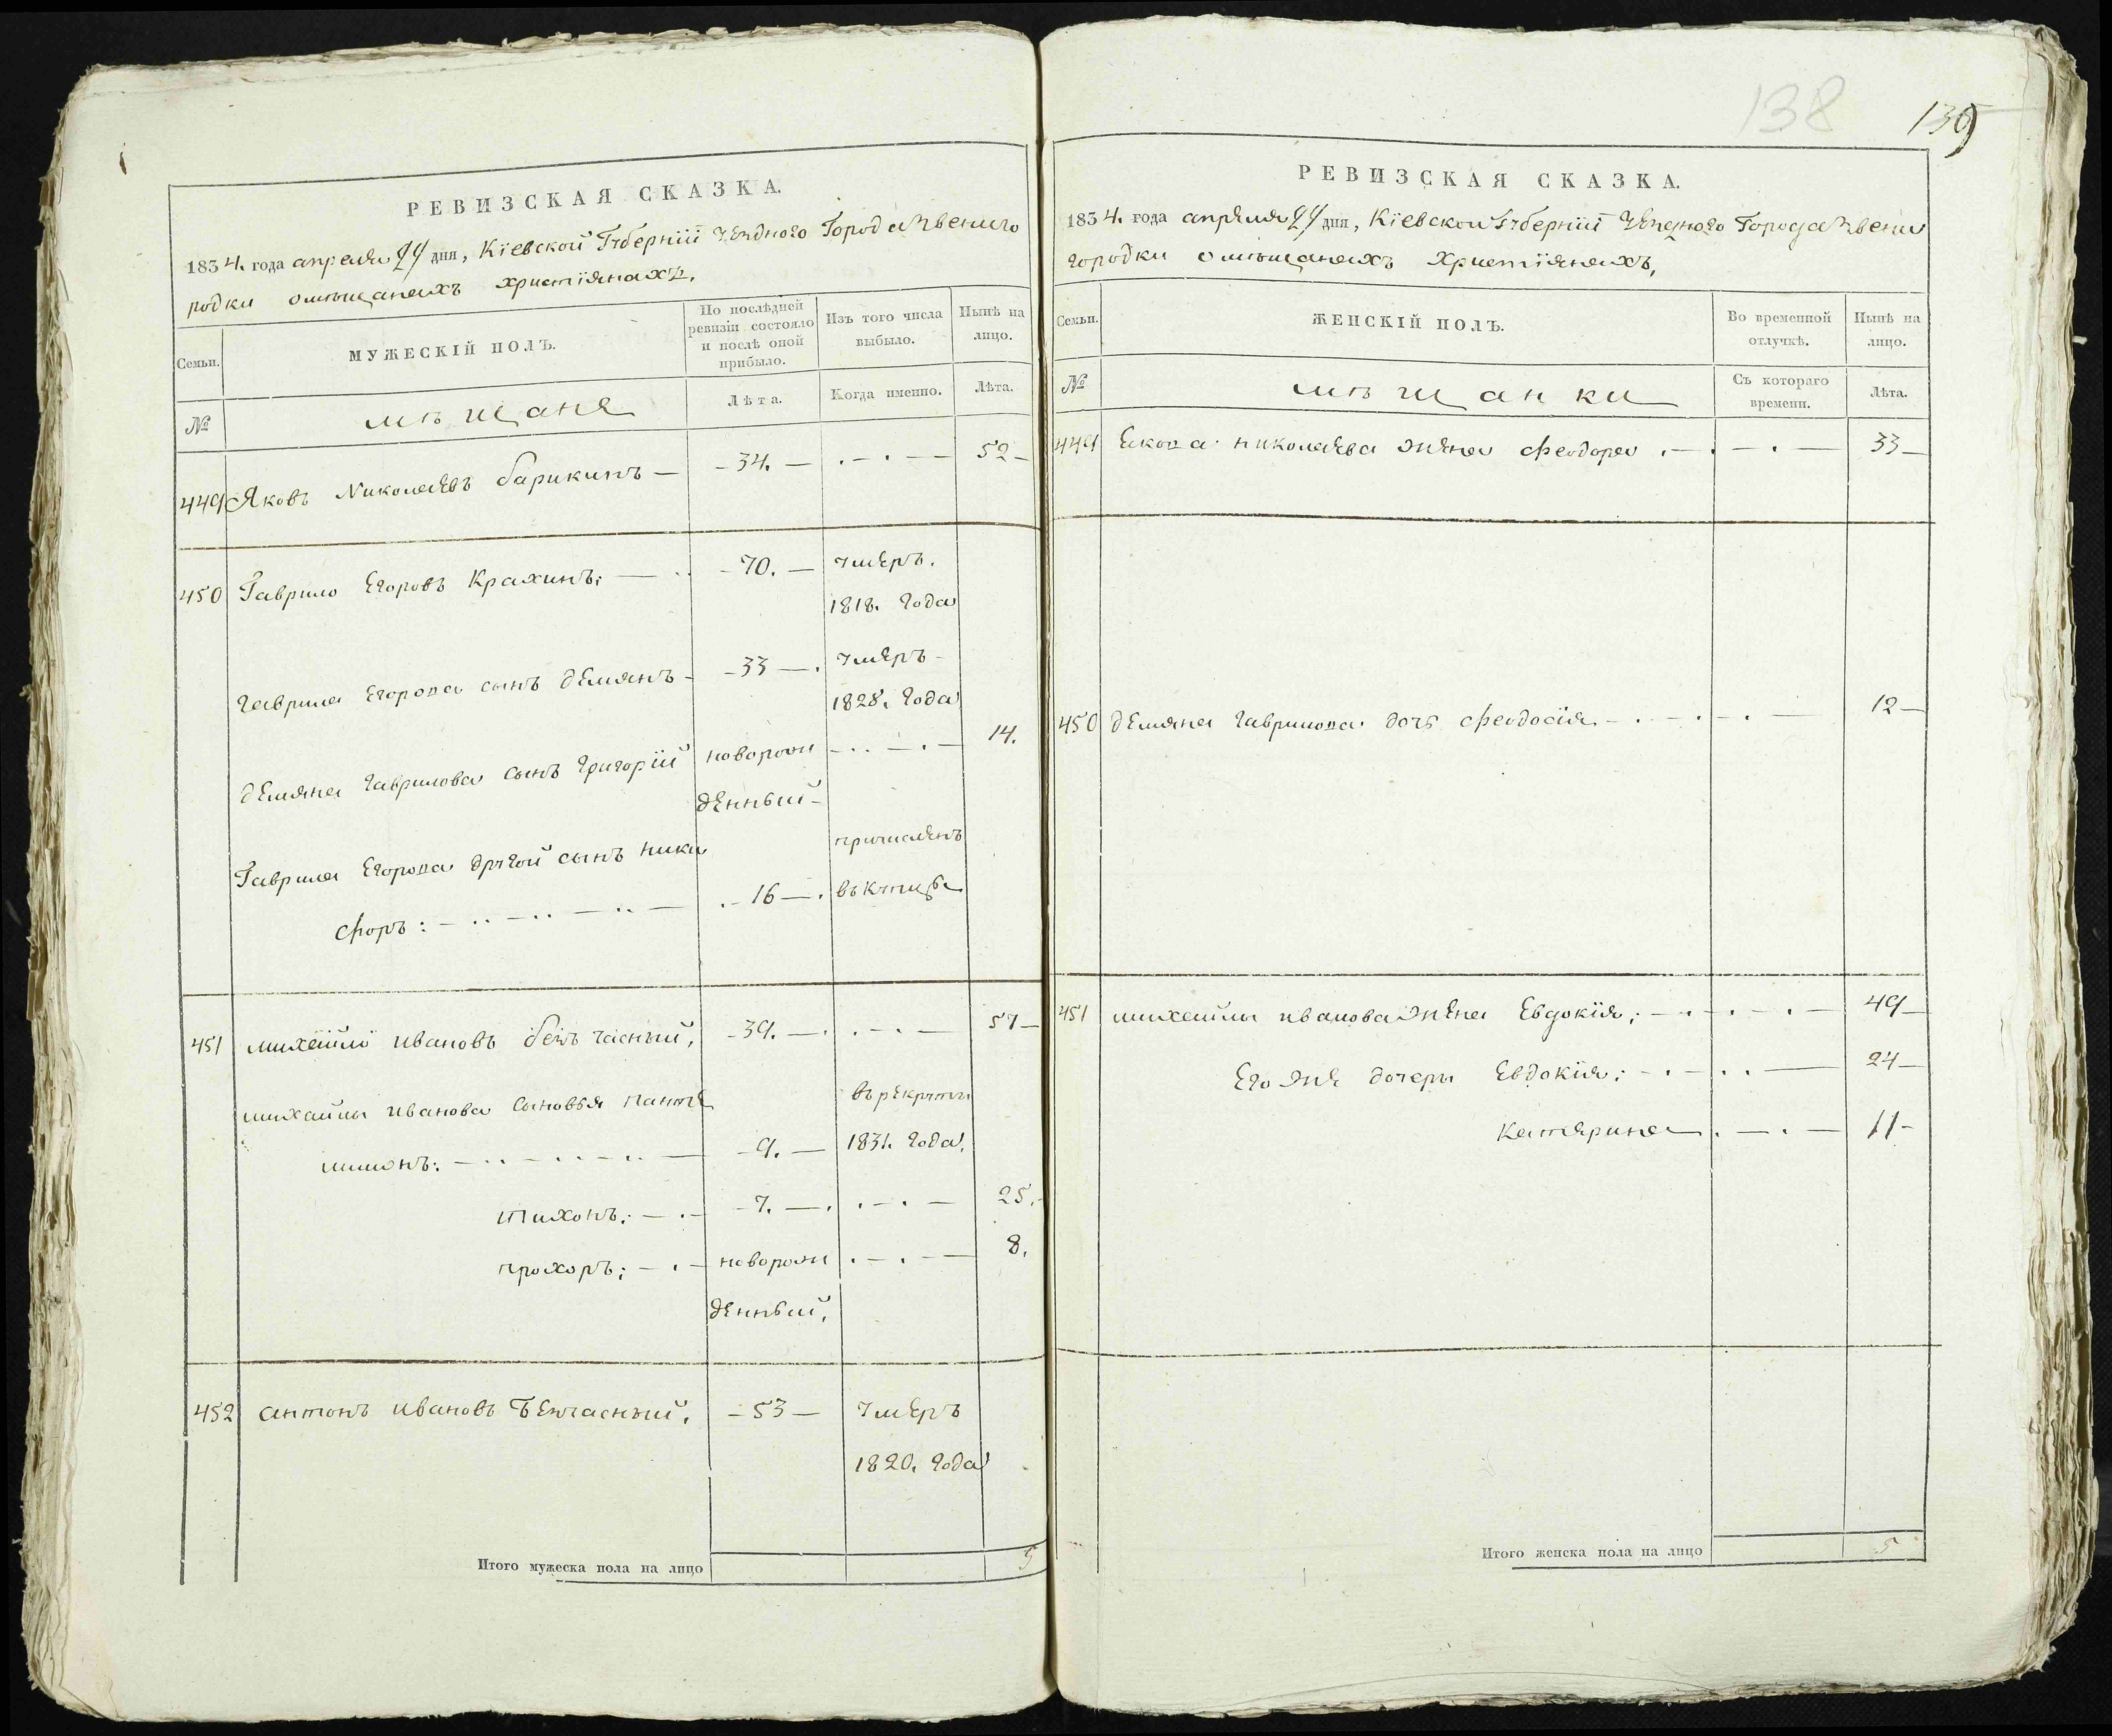 РЕВИЗСКАЯ СКАЗКА.
1834. года апреля 24 дня, Кіевской Губерніи уезднаго Города Звениго
родки омѣщанахъ христіянахъ.
Семьи.
МУЖЕСКІЙ ПОЛЪ.
По послѣдней
ревизіи состояло
и послѣ оной
прибыло.
Изъ того числа
выбыло.
Нынѣ на
лицо.
№
мѣщане
Лѣта.
Когда именно.
Лѣта.
449 Яковъ Николаевъ барикинъ — 34. — 52
450 Гаврило Егоровъ Крахинъ: — 70. — умеръ.
1818. года
гаврила Егорова сынъ демянъ — 33 — умеръ
1828. года
демяна гаврилова сынъ григорій новорож 14.
денный
Гаврила Егорова другой сынъ ники причисленъ
форъ: — 16 — вкупцы
451 михайло ивановъ безчасный, 39. — 57
михайлы иванова сыновья панте въ рекруты
лимонъ: — 9. — 1831. года.
тихонъ: — 7. — 25.
прохоръ: — новорож 8.
денный,
452 антонъ ивановъ Безчасный, — 53 — умеръ
1820. года
Итого мужеска пола на лицо 5
138
РЕВИЗСКАЯ СКАЗКА.
1834. года апреля 24 дня, Кіевской Губерніи Уезднаго Города Звени
городки омѣщанахъ христіянахъ,
Семьи.
ЖЕНСКІЙ ПОЛЪ.
Во временной
отлучкѣ.
Нынѣ на
лицо.
№
мѣщанки
Съ котораго
времени.
Лѣта.
449 Якова николаева жена феодора 33
450 демяна гаврилова дочь феодосія 12
451 михайлы иванова жена Евдокія; 49
Его же дочеры Евдокія; 24
катерина 11
Итого женска пола на лицо 5